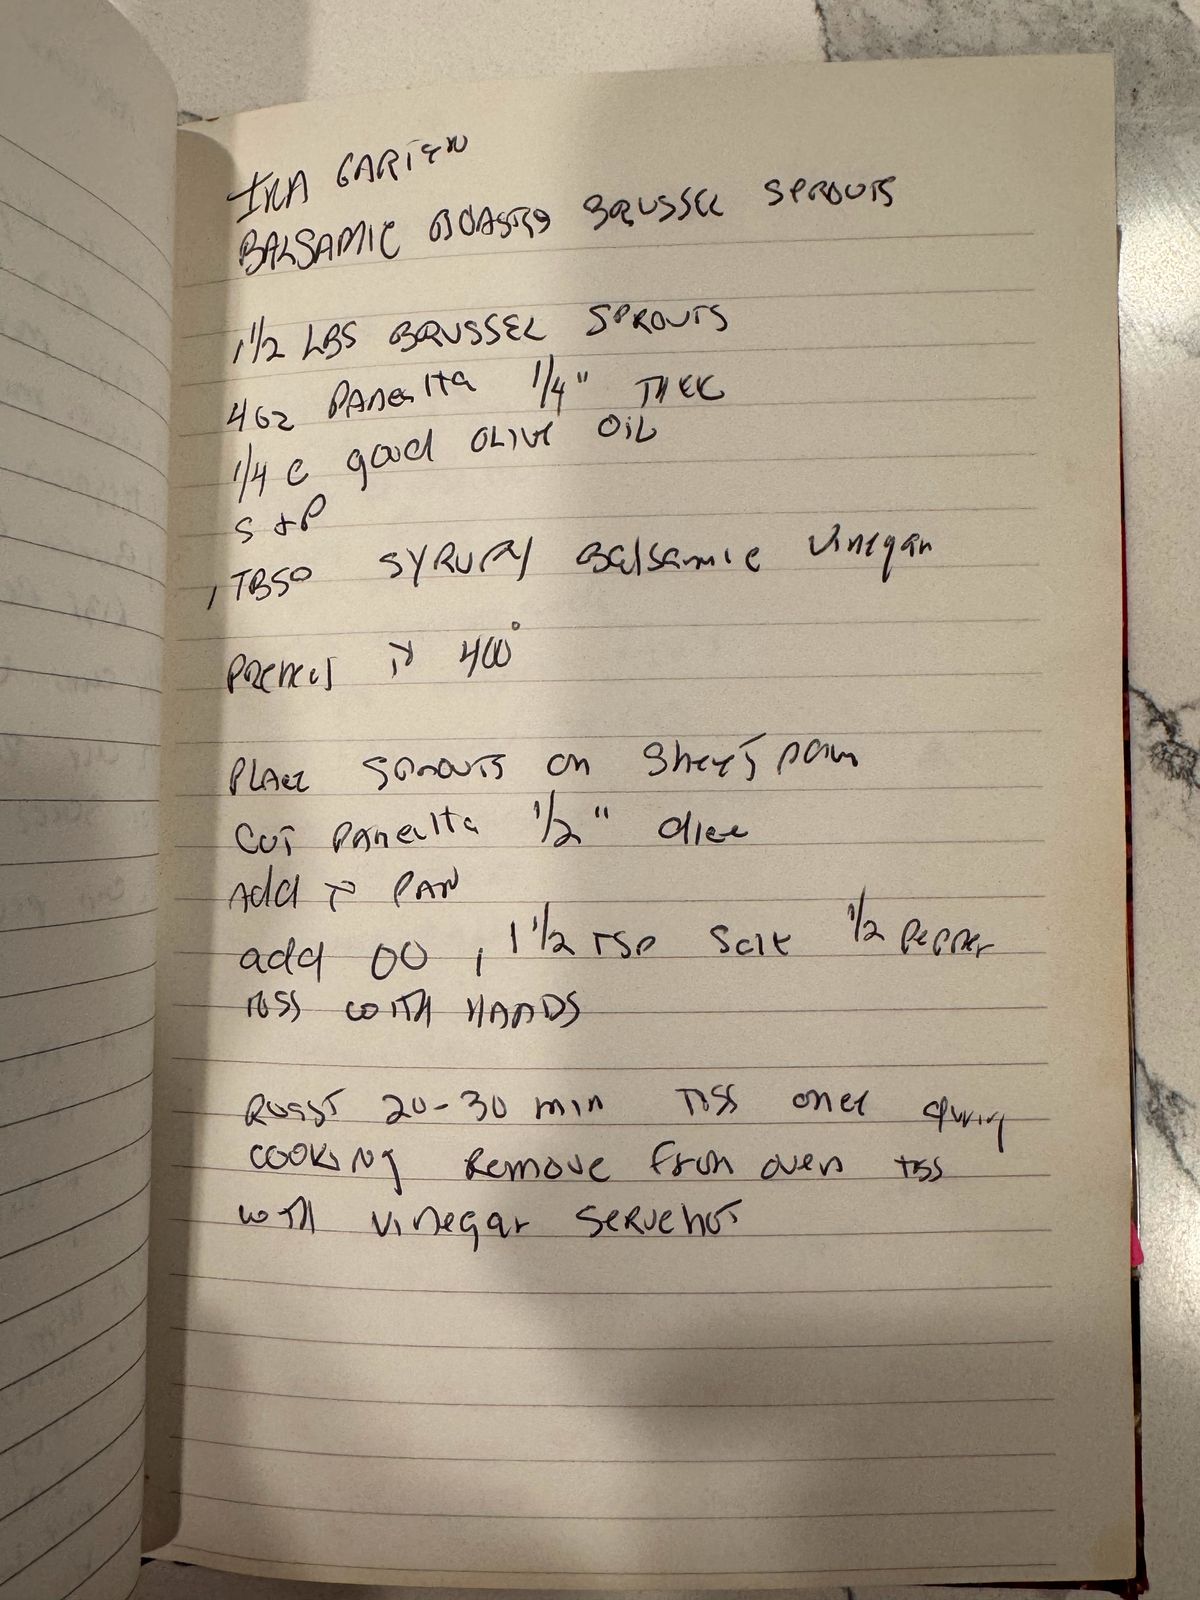 INA GARTEN
BALSAMIC ROASTED BRUSSEL SPROUTS
1 1/2 LBS BRUSSEL SPROUTS
4 oz PANCEtta 1/4" THICK
1/4 C good OLIVE OIL
S + P
1 TBSP SYRUPY Balsamic Vinegar
PREHEAT TO 400°
PLACE SPROUTS on Sheet pan
CUT PANCEtta 1/2" dice
Add TO PAN
add OO, 1 1/2 TSP Salt 1/2 pepper
TOSS WITH HANDS
ROAST 20-30 min TOSS once during
COOKING Remove from oven toss
WITH Vinegar SERVE hot